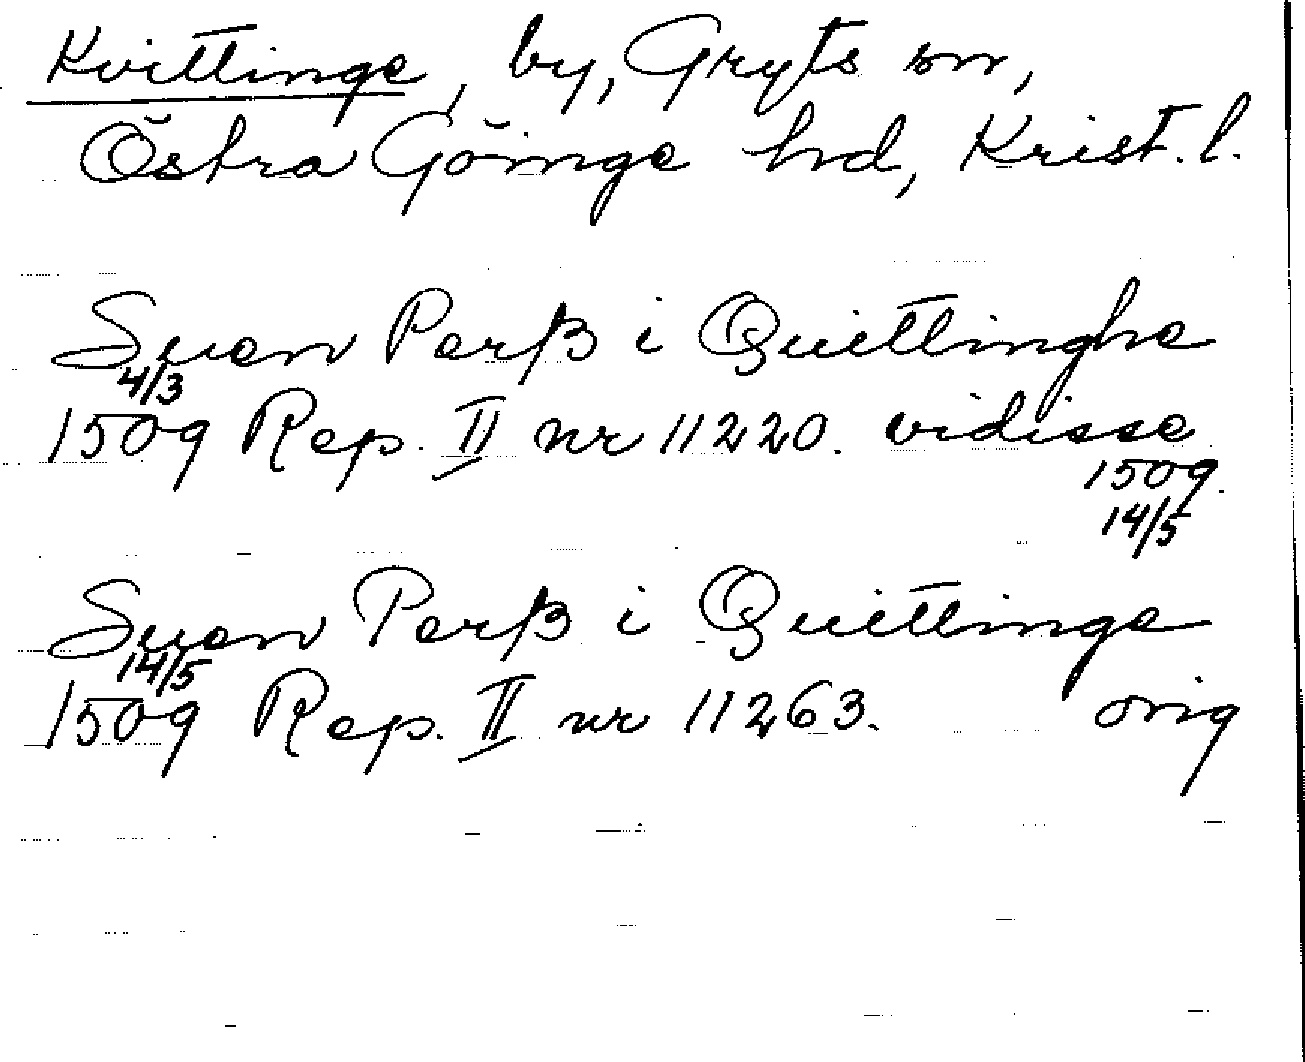 Kvittinge, by, Gryts sn,
Östra Göinge hrd, Krist. l.
Suen Perß i Quittinghe
4/3
1509 Rep. II nr 11220. vidisse
1509.
14/5
Suen Perß i Quittinge
14/5
1509 Rep. II nr 11263. orig